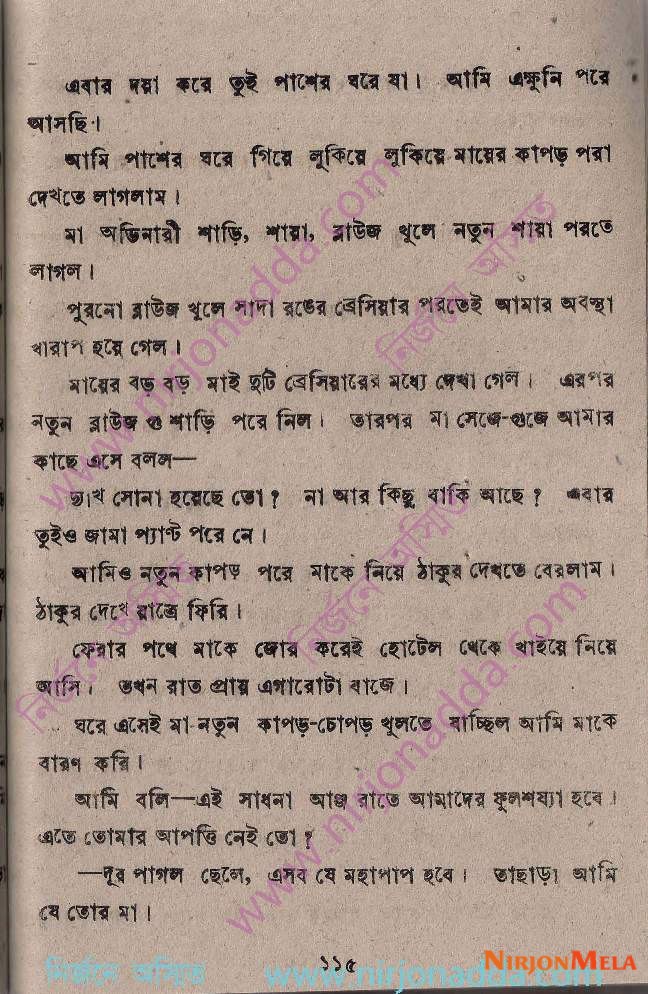 এবার দয়া করে তুই পাশের ঘরে যা। আমি এক্ষুনি পরে
আসছি।
আমি পাশের ঘরে গিয়ে লুকিয়ে লুকিয়ে মায়ের কাপড় পরা
দেখতে লাগলাম।
মা অর্ডিনারী শাড়ি, শায়া, ব্লাউজ খুলে নতুন শায়া পরতে
লাগল।
পুরনো ব্লাউজ খুলে সাদা রঙের ব্রেসিয়ার পরতেই আমার অবস্থা
খারাপ হয়ে গেল।
মায়ের বড় বড় মাই দুটি ব্রেসিয়ারের মধ্যে দেখা গেল। এরপর
নতুন ব্লাউজ ও শাড়ি পরে নিল। তারপর মা সেজে-গুজে আমার
কাছে এসে বলল—
দ্যাখ সোনা হয়েছে তো? না আর কিছু বাকি আছে? এবার
তুইও জামা প্যান্ট পরে নে।
আমিও নতুন কাপড় পরে মাকে নিয়ে ঠাকুর দেখতে বেরলাম।
ঠাকুর দেখে রাত্রে ফিরি।
ফেরার পথে মাকে জোর করেই হোটেল থেকে খাইয়ে নিয়ে
আসি। তখন রাত প্রায় এগারোটা বাজে।
ঘরে এসেই মা নতুন কাপড়-চোপড় খুলতে যাচ্ছিল আমি মাকে
বারণ করি।
আমি বলি—এই সাধনা আজ রাতে আমাদের ফুলশয্যা হবে।
এতে তোমার আপত্তি নেই তো?
—দূর পাগল ছেলে, এসব যে মহাপাপ হবে। তাছাড়া আমি
যে তোর মা।
১১৫
নির্জনে অস্মিত
www.nirjonadda.com
NIRJONMELA